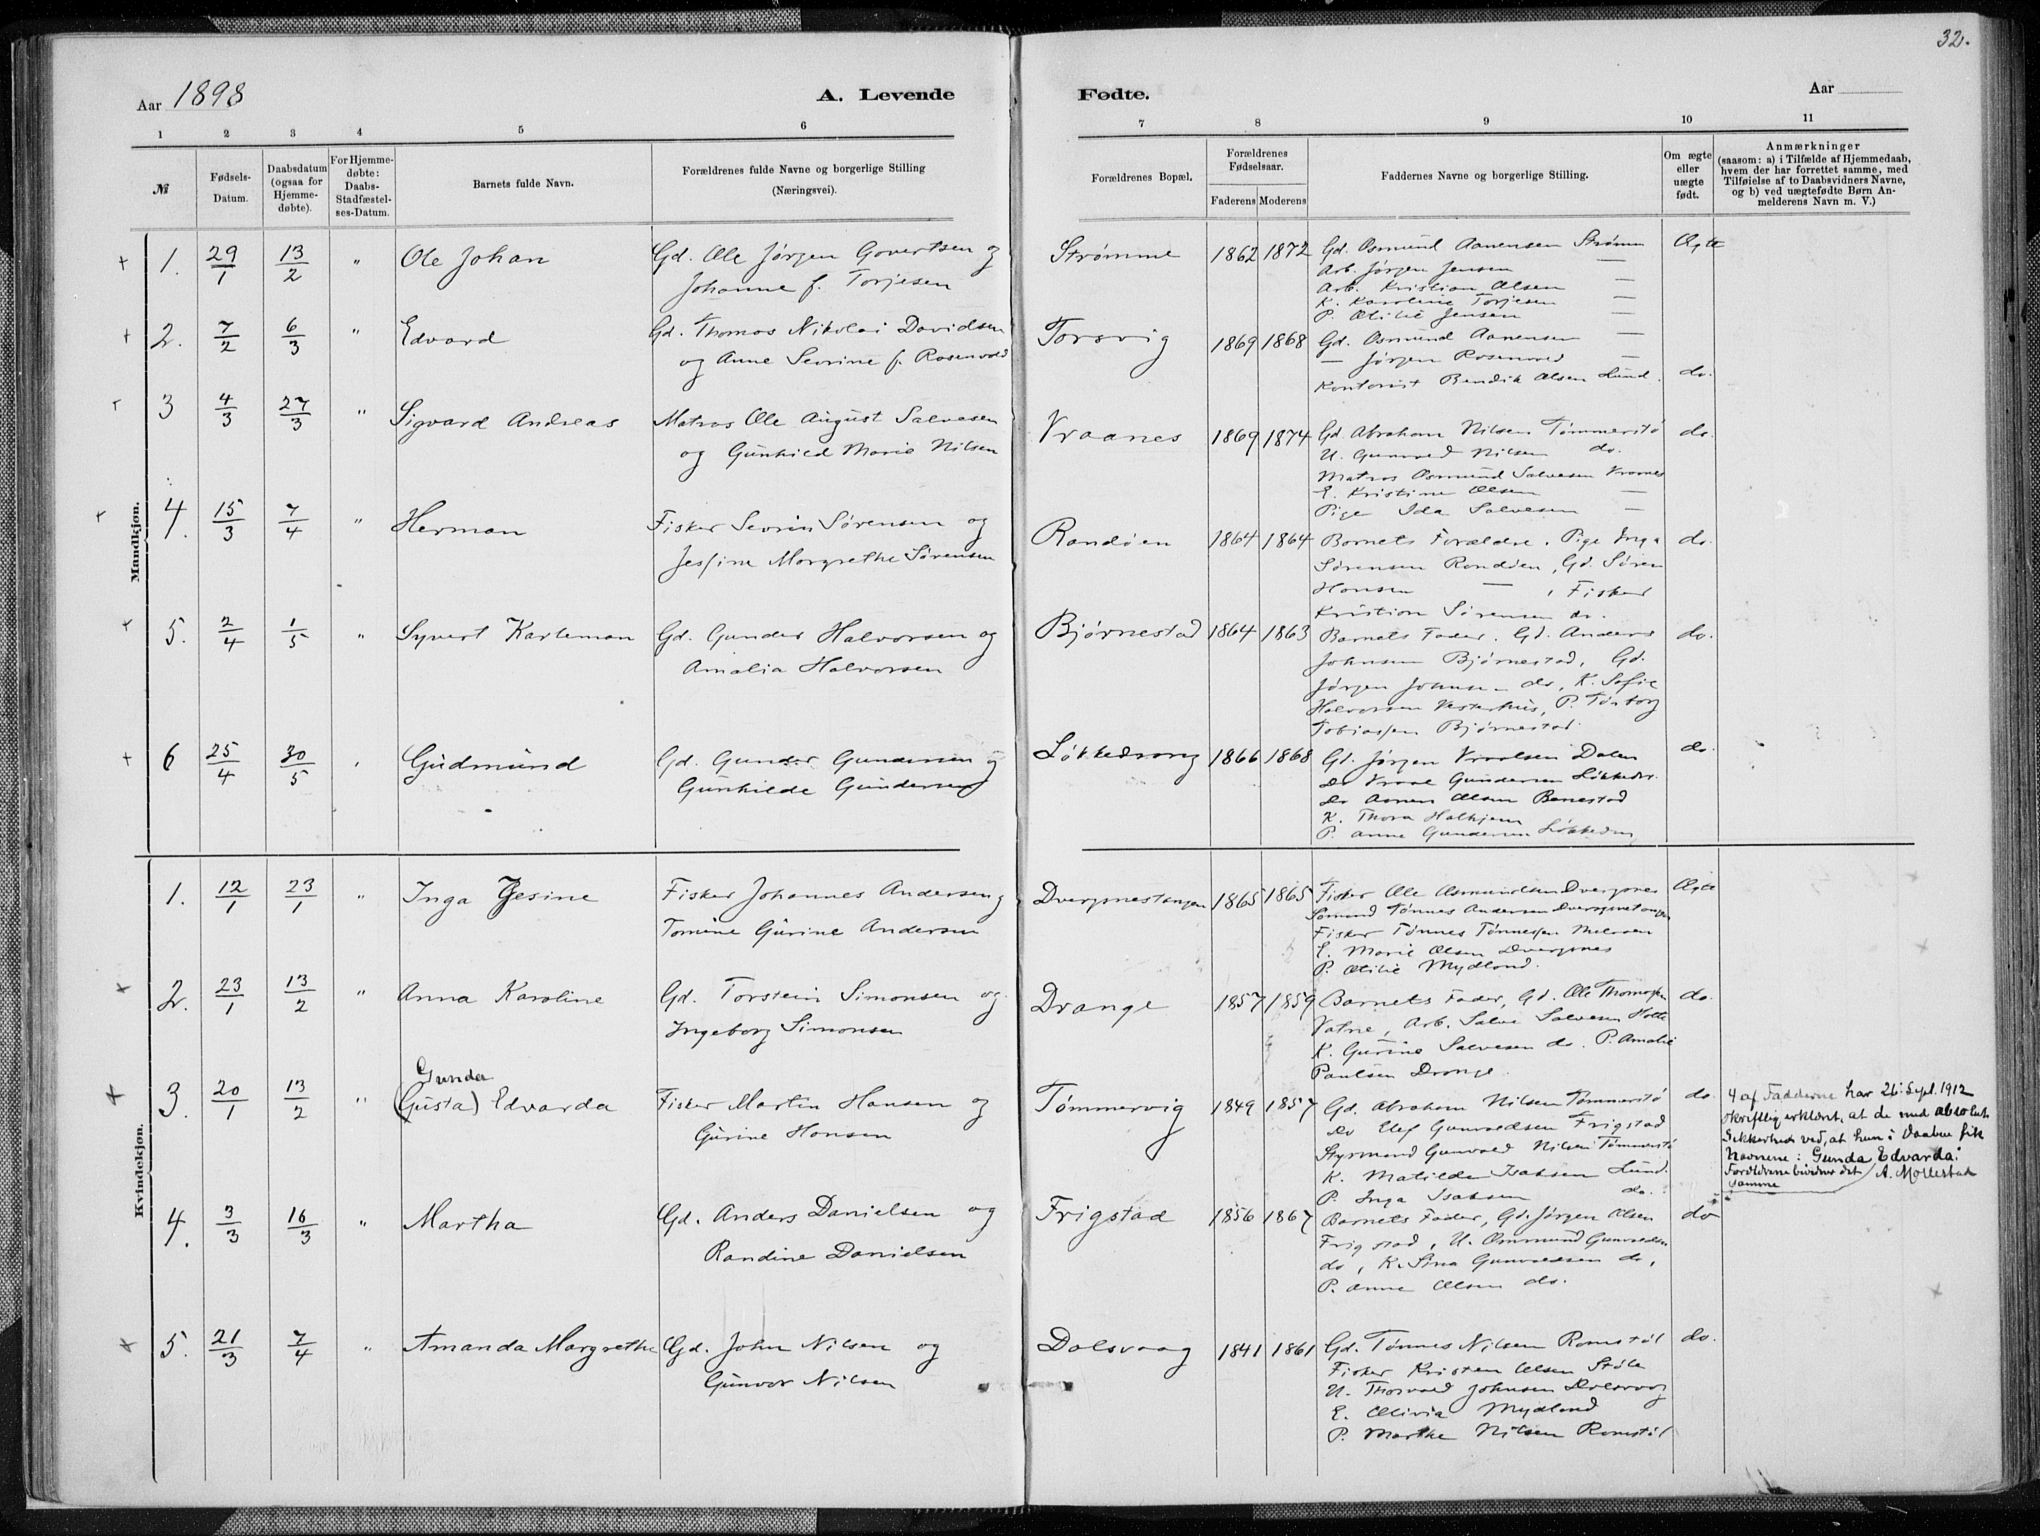 32.
Aar 1898
A. Levende
Fødte.
Aar
1 2 3 4 5 6
7 8 9 10 11
№
Fødsels-
Datum.
Daabsdatum
(ogsaa for
Hjemme-
døbte).
For Hjemme-
døbte:
Daabs-
Stadfæstel-
ses-Datum.
Barnets fulde Navn.
Forældrenes fulde Navne og borgerlige Stilling
(Næringsvei).
Forældrenes Bopæl.
Forældrenes
Fødselsaar.
Faderens Moderens
Faddernes Navne og borgerlige Stilling.
Om ægte
eller
uægte
født.
Anmærkninger
(saasom: a) i Tilfælde af Hjemmedaab,
hvem der har forrettet samme, med
Tilføielse af to Daabsvidners Navne,
og b) ved uægtefødte Børn An-
melderens Navn m. V.)
Mandkjøn.
1. 29/1 13/2 " Ole Johan
Gd. Ole Jørgen Govertsen og
Johanne f. Torjesen
Strømme 1862 1872
Gd. Osmund Aanensen Strømm
Arb. Jørgen Jensen —
Arb. Kristian Olsen —
K. Karoline Torjesen —
P. Otilie Jensen —
Ægte
2. 7/2 6/3 " Edvard
Gd. Thomas Nikolai Davidsen
og Anne Sevrine f. Rosenvold
Torsvig 1869 1868
Gd. Osmund Aanensen —
— Jørgen Rosenvold —
Kontorist Bendik Olsen Lund.
do.
3 4/3 27/3 " Sigvard Andreas
Matros Ole August Salvesen
og Gunhild Marie Nilsen
Vraanes 1869 1874
Gd. Abraham Nilsen Tømmerstø
U. Gunvald Nilsen do.
Matros Osmund Salvesen Vraanes
E. Kristine Olsen —
Pige Ida Salvesen —
do.
4. 15/3 7/4 " Herman
Fisker Sevrin Sørensen og
Jesfine Margrethe Sørensen
Randøen 1864 1864
Barnets Forældre. Pige Inga
Sørensen Randøen, Gd. Søren
Hansen — , Fisker
Kristian Sørensen do.
do.
5. 2/4 1/5 " Syvert Karleman
Gd. Gunder Halvorsen og
Amalia Halvorsen
Bjørnestad 1864 1863
Barnets Fader. Gd. Anders
Johnsen Bjørnestad, Gd.
Jørgen Johnsen do, K. Sofie
Halvorsen Vesterhus, P. Torborg
Tobiassen Bjørnestad.
do.
6 25/4 30/5 " Gudmund
Gd. Gunder Gundersen og
Gunhilde Gundersen
Løkkedrang 1866 1868
Gd. Jørgen Vraalsen Dalen
Do Vraal Gundersen Løkkedr.
Do Aanen Olsen Benestad
K. Thora Halkjem
P. Anne Gundersen Løkkedrang
do.
Kvindekjøn.
1. 12/1 23/1 " Inga Jesine
Fisker Johannes Andersen og
Tomine Gurine Andersen
Dvergsnestangen 1865 1865
Fisker Ole Osmundsen Dvergsnes
Sømand Tønnes Andersen Dvergsnestangen
Fisker Tønnes Tønnessen
E. Marie Olsen Dvergsnes
P. Otilie Mydland.
Ægte
2. 23/1 13/2 " Anna Karoline
Gd. Torstein Simonsen og
Ingeborg Simonsen
Drange 1857 1859
Barnets Fader, Gd. Ole Thomassen
Vatne, Arb. Salve Salvesen Holte
K. Gurine Salvesen do. P. Amalie
Paulsen Drange.
do.
3. 20/1 13/2 " Gunda
(Gusta) Edvarda
Fisker Martin Hansen og
Gurine Hansen
Tømmervig 1849 1857
Gd. Abraham Nilsen Tømmerstø
Do Elef Gunvaldsen Frigstad
Styrmand Gunvald Nilsen Tømmerstø
K. Matilde Isaksen Lund
P. Inga Isaksen do.
do.
4 af Fadderne har 26. Sept. 1912
skriftlig erklæret, at de med absolut
Sikkerhed ved, at hun i Daaben fik
Navnene: Gunda Edvarda.
Forældrene bevidner det
samme
A. Mollestad
4. 3/3 16/3 " Martha
Gd. Anders Danielsen og
Randine Danielsen
Frigstad 1856 1867
Barnets Fader, Gd. Jørgen Olsen
Frigstad, U. Ommund Gunvaldsen
do, K. Sina Gunvaldsen do,
P. Anne Olsen do.
do
5. 21/3 7/4 " Amanda Margrethe
Gd. John Nilsen og
Gunvor Nilsen
Dalsvaag 1841 1861
Gd. Tønnes Nilsen Romstøl
Fisker Kristen Olsen Støle
U. Thorvald Johnsen Dalsvaag
E. Olivia Mydland
P. Marthe Nilsen Romstøl
do.